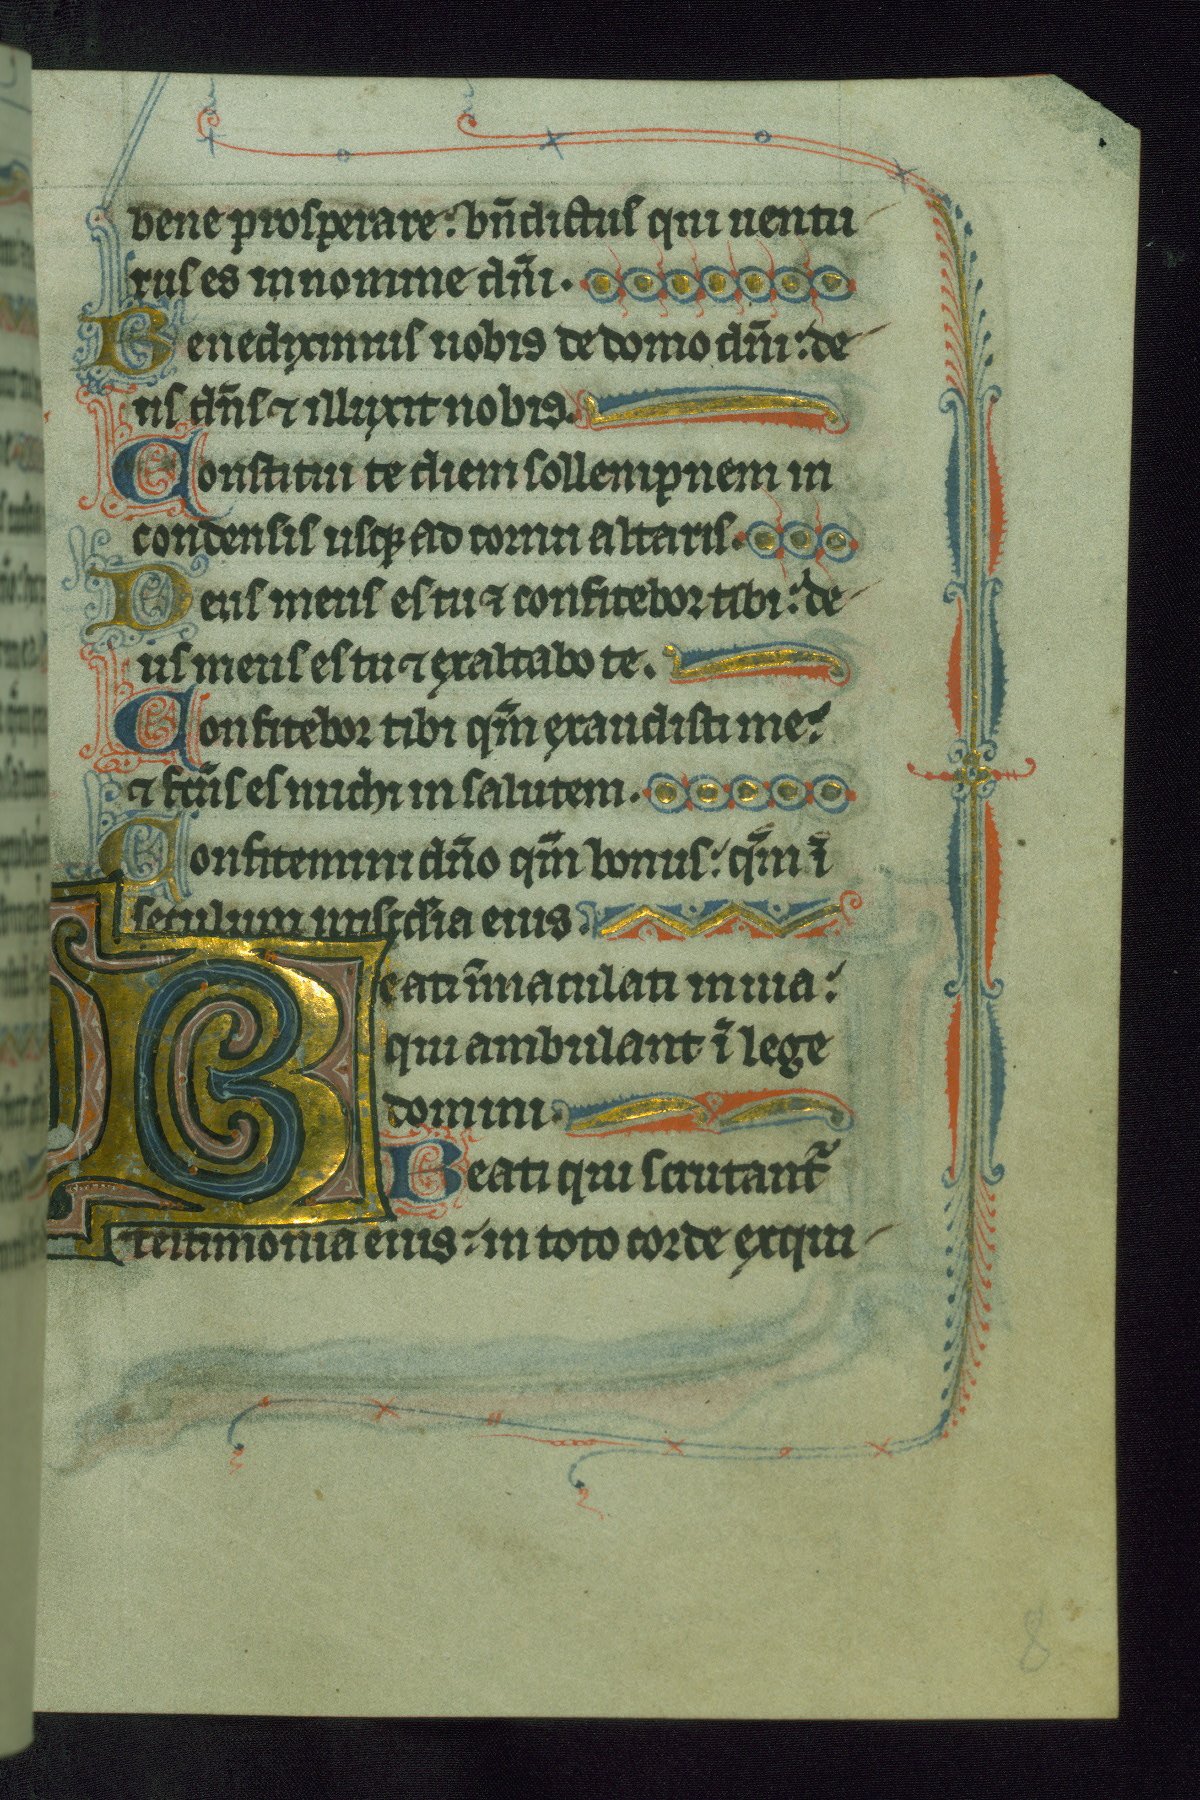 bene prosperare: bn̄dictus qui uentu
rus es in nomine dn̄i.
Benediximus uobis de domo dn̄i: de
us dn̄s ⁊ illuxit nobis.
Constitui te diem sollempnem in
condensis usqꝫ ad cornu altaris.
Deus meus es tu ⁊ confitebor tibi: de
us meus es tu ⁊ exaltabo te.
Confitebor tibi qm̄ exaudisti me:
⁊ fc̄us es michi in salutem.
Confitemini dn̄o qm̄ bonus: qm̄ ī
seculum misc̄dia eius.
Beati īmaculati in uia:
qui ambulant ī lege
domini.
Beati qui scrutant᷑
testimonia eius: in toto corde exqui
8